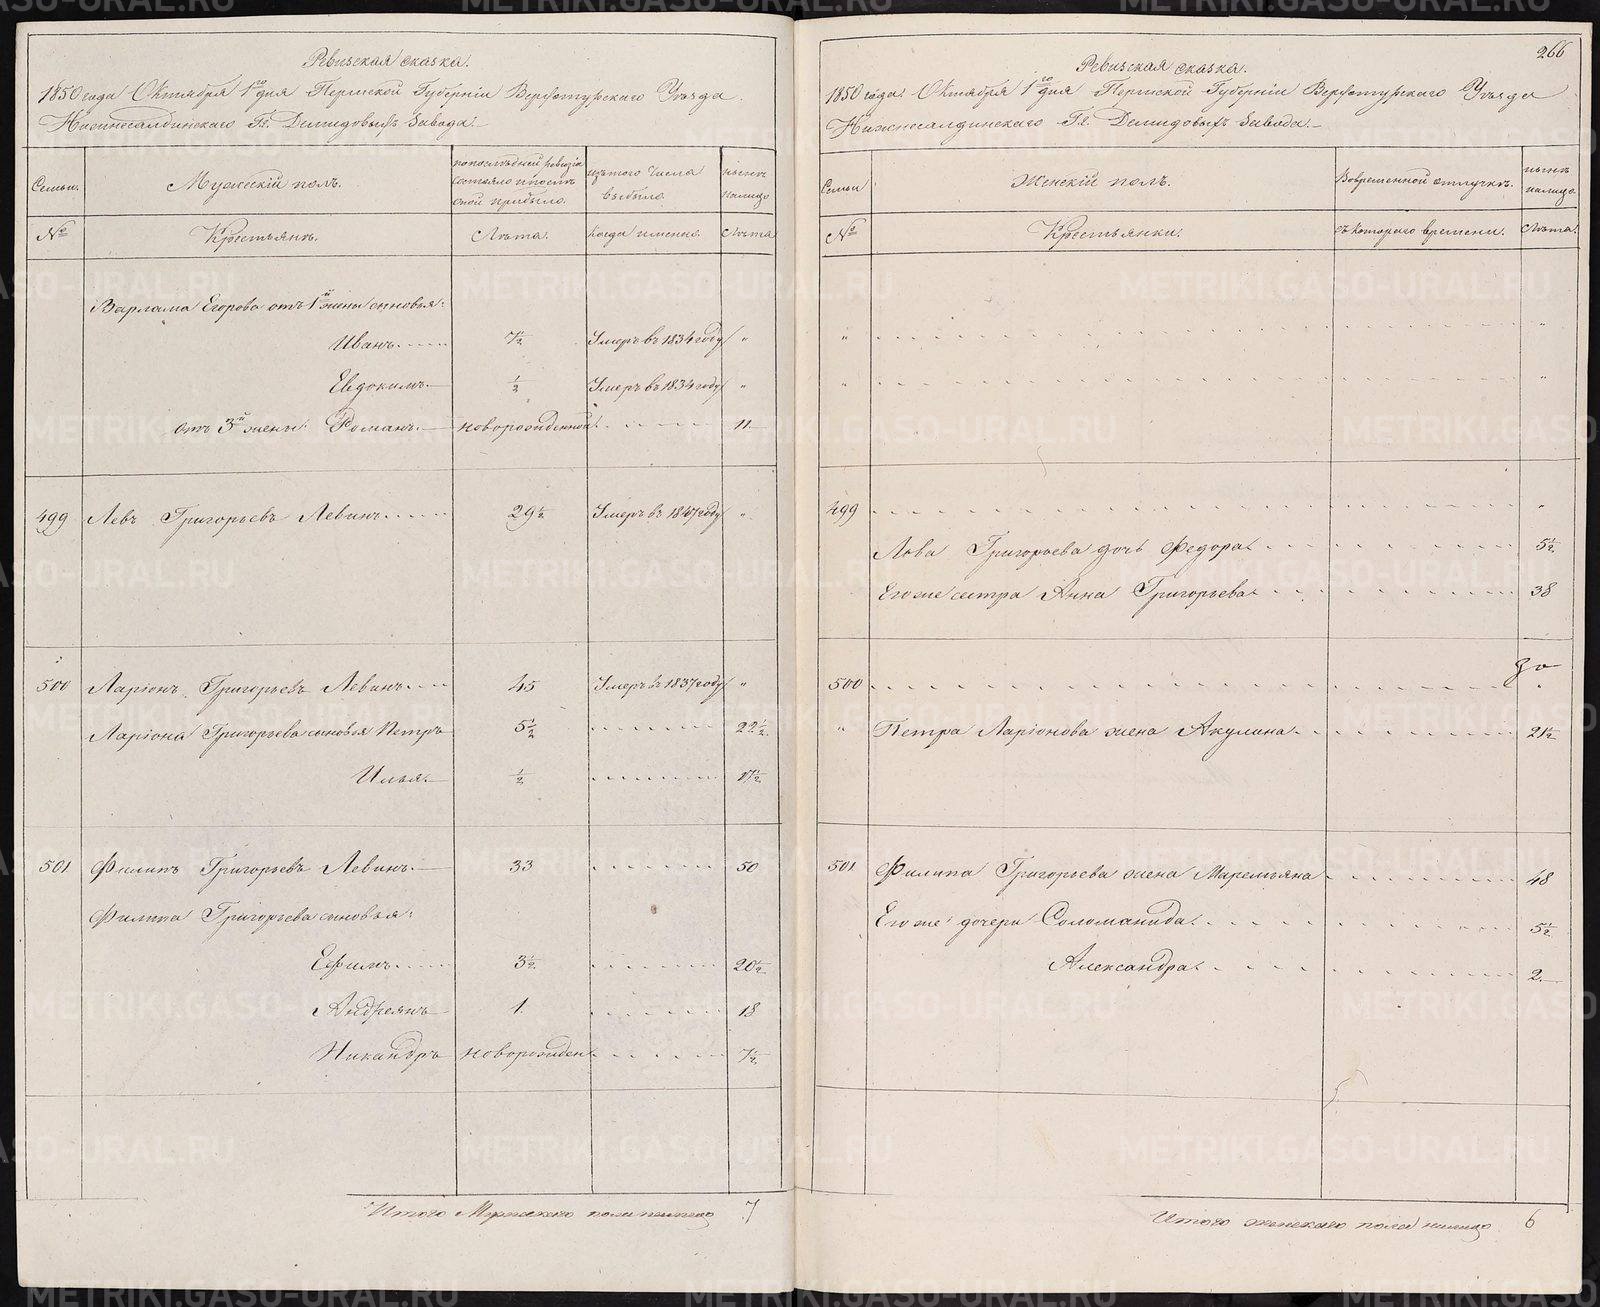 Ревизская сказка.
1850 года Октября 1го дня Пермской Губернiи Верхотурскаго Уѣзда
Нижнесалдинскаго Гг. Демидовыхъ Завода.
Семьи.
Мужескiй полъ.
по послѣдней ревизiи состояло и послѣ оной прибыло.
изъ того числа выбыло.
нынѣ налицо
№
Крестьянъ.
Лѣта.
когда именно.
Лѣта
Варлама Егорова отъ 1й жены сыновья:
Иванъ. 7½ Умеръ въ 1834 году "
Евдокимъ. ½ Умеръ въ 1834 году "
отъ 3й жены: Романъ. новорожденной. 11
499 Левъ Григорьевъ Левинъ. 29½ Умеръ въ 1847 году "
500 Ларiонъ Григорьевъ Левинъ. 45 Умеръ въ 1837 году "
Ларiона Григорьева сыновья Петръ 5½ 22½
Илья. ½ 17½
501 Филипъ Григорьевъ Левинъ. 33 50
Филипа Григорьева сыновья:
Ефимъ. 3½ 20½
Андреянъ 1. 18
Никандръ новорожден. 7½
Итого Мужескаго пола налицо 7
266
Ревизская сказка.
1850 года Октября 1го дня Пермской Губернiи Верхотурскаго Уѣзда
Нижнесалдинскаго Гг. Демидовыхъ Завода.
Семьи
Женскiй полъ.
Вовременной отлучкѣ.
нынѣ налицо.
№
Крестьянки.
съ котораго времени.
Лѣта.
" "
" "
499 "
Лва Григорьева дочь Федора. 5½
Его же сестра Анна Григорьева. 38
500 "
" Петра Ларiонова жена Акулина. 21½
501 Филипа Григорьева жена Маремьяна 48
Его же дочери Соломанида. 5½
Александра. 2.
Итого женскаго пола налицо 6